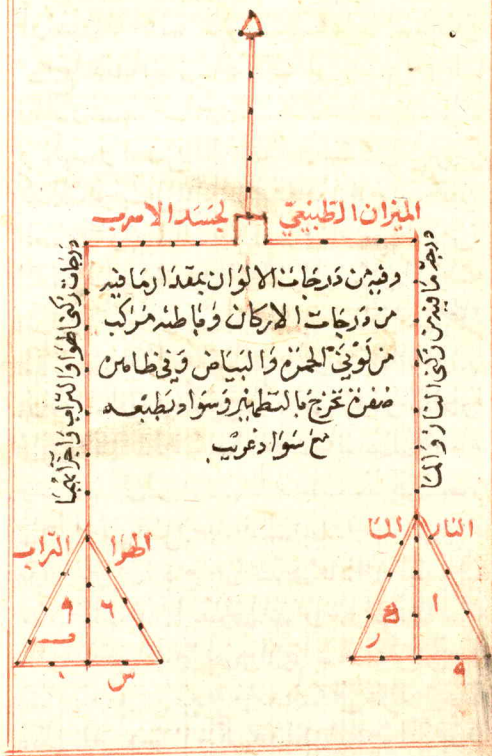 الميزان الطبيعي لجسد الاسرب
وفيه من درجات الالوان بمقدار ما فيه
من درجات الاركان وباطنه مركب
من لوني الحمرة والبياض وفي ظاهره
صفرة تخرج بالتطهير وسواد تطبعه
مع سواد غريب
درجة ما فيه من ركني النار والما
درجات ركني الهوا والتراب واجزآئهما
النار الما
الهوا التراب
١
٩
٦
٩
س